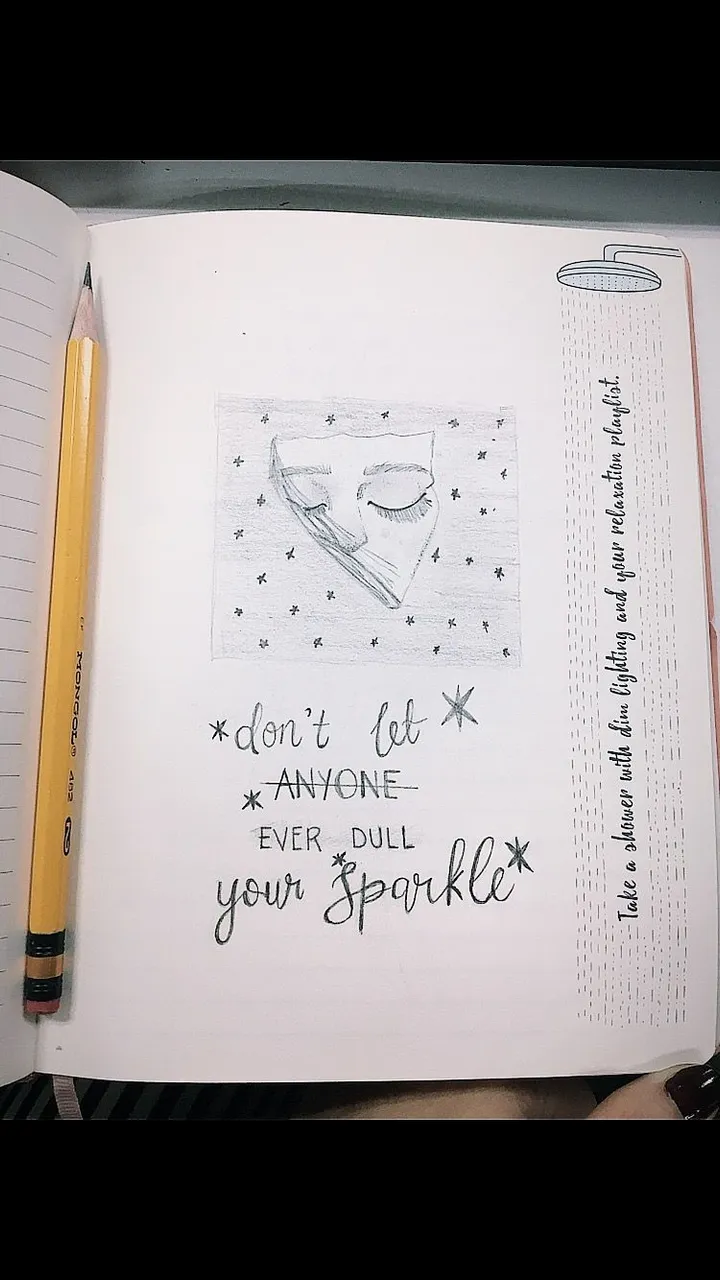 don't let
ANYONE
EVER DULL
your Sparkle
Take a shower with dim lighting and your relaxation playlist.
MONGOL® 482 2